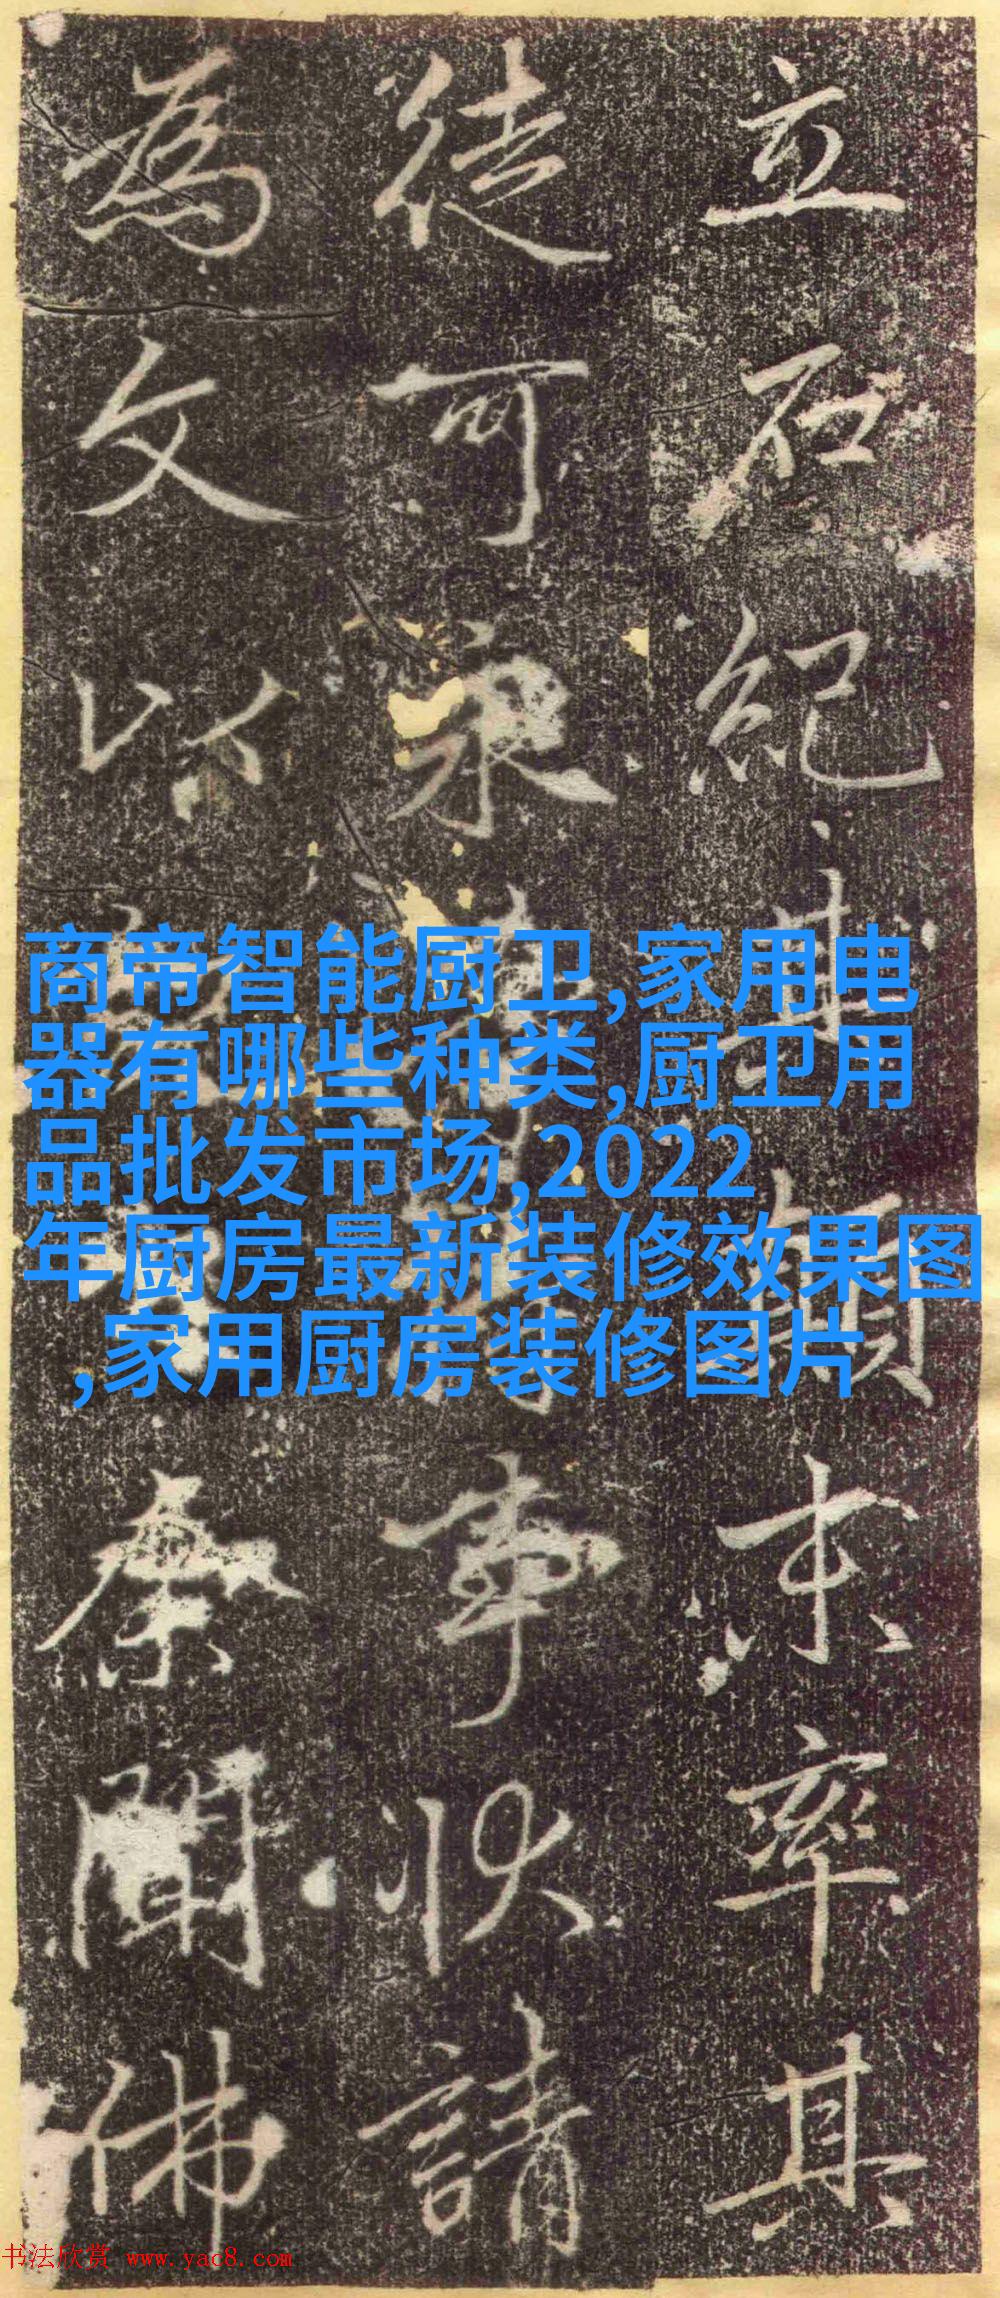 立石紀其顛末率其
徒可事狀請
為文以余聞佛
商帝智能厨卫,家用电
器有哪些种类,厨卫用
品批发市场,2022
年厨房最新装修效果图
,家用厨房装修图片
书法欣赏 www.yac8.com